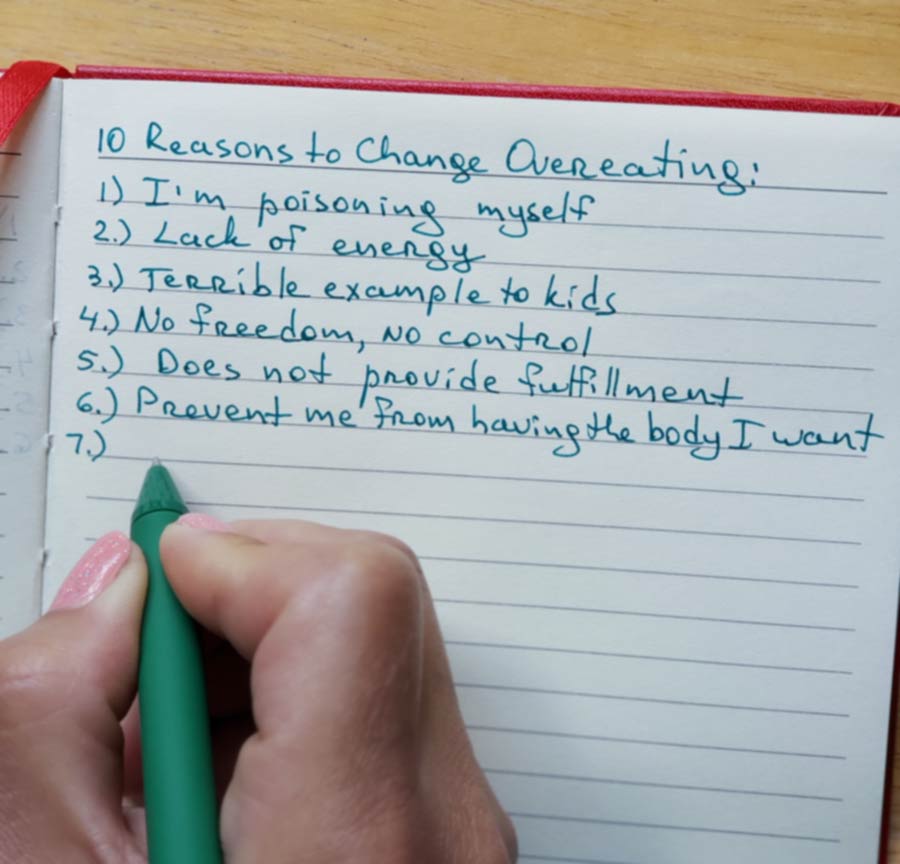 10 Reasons to Change Overeating:
1) I'm poisoning myself
2.) Lack of energy
3.) Terrible example to kids
4.) No freedom, no control
5.) Does not provide fulfillment
6.) Prevent me from having the body I want
7.)